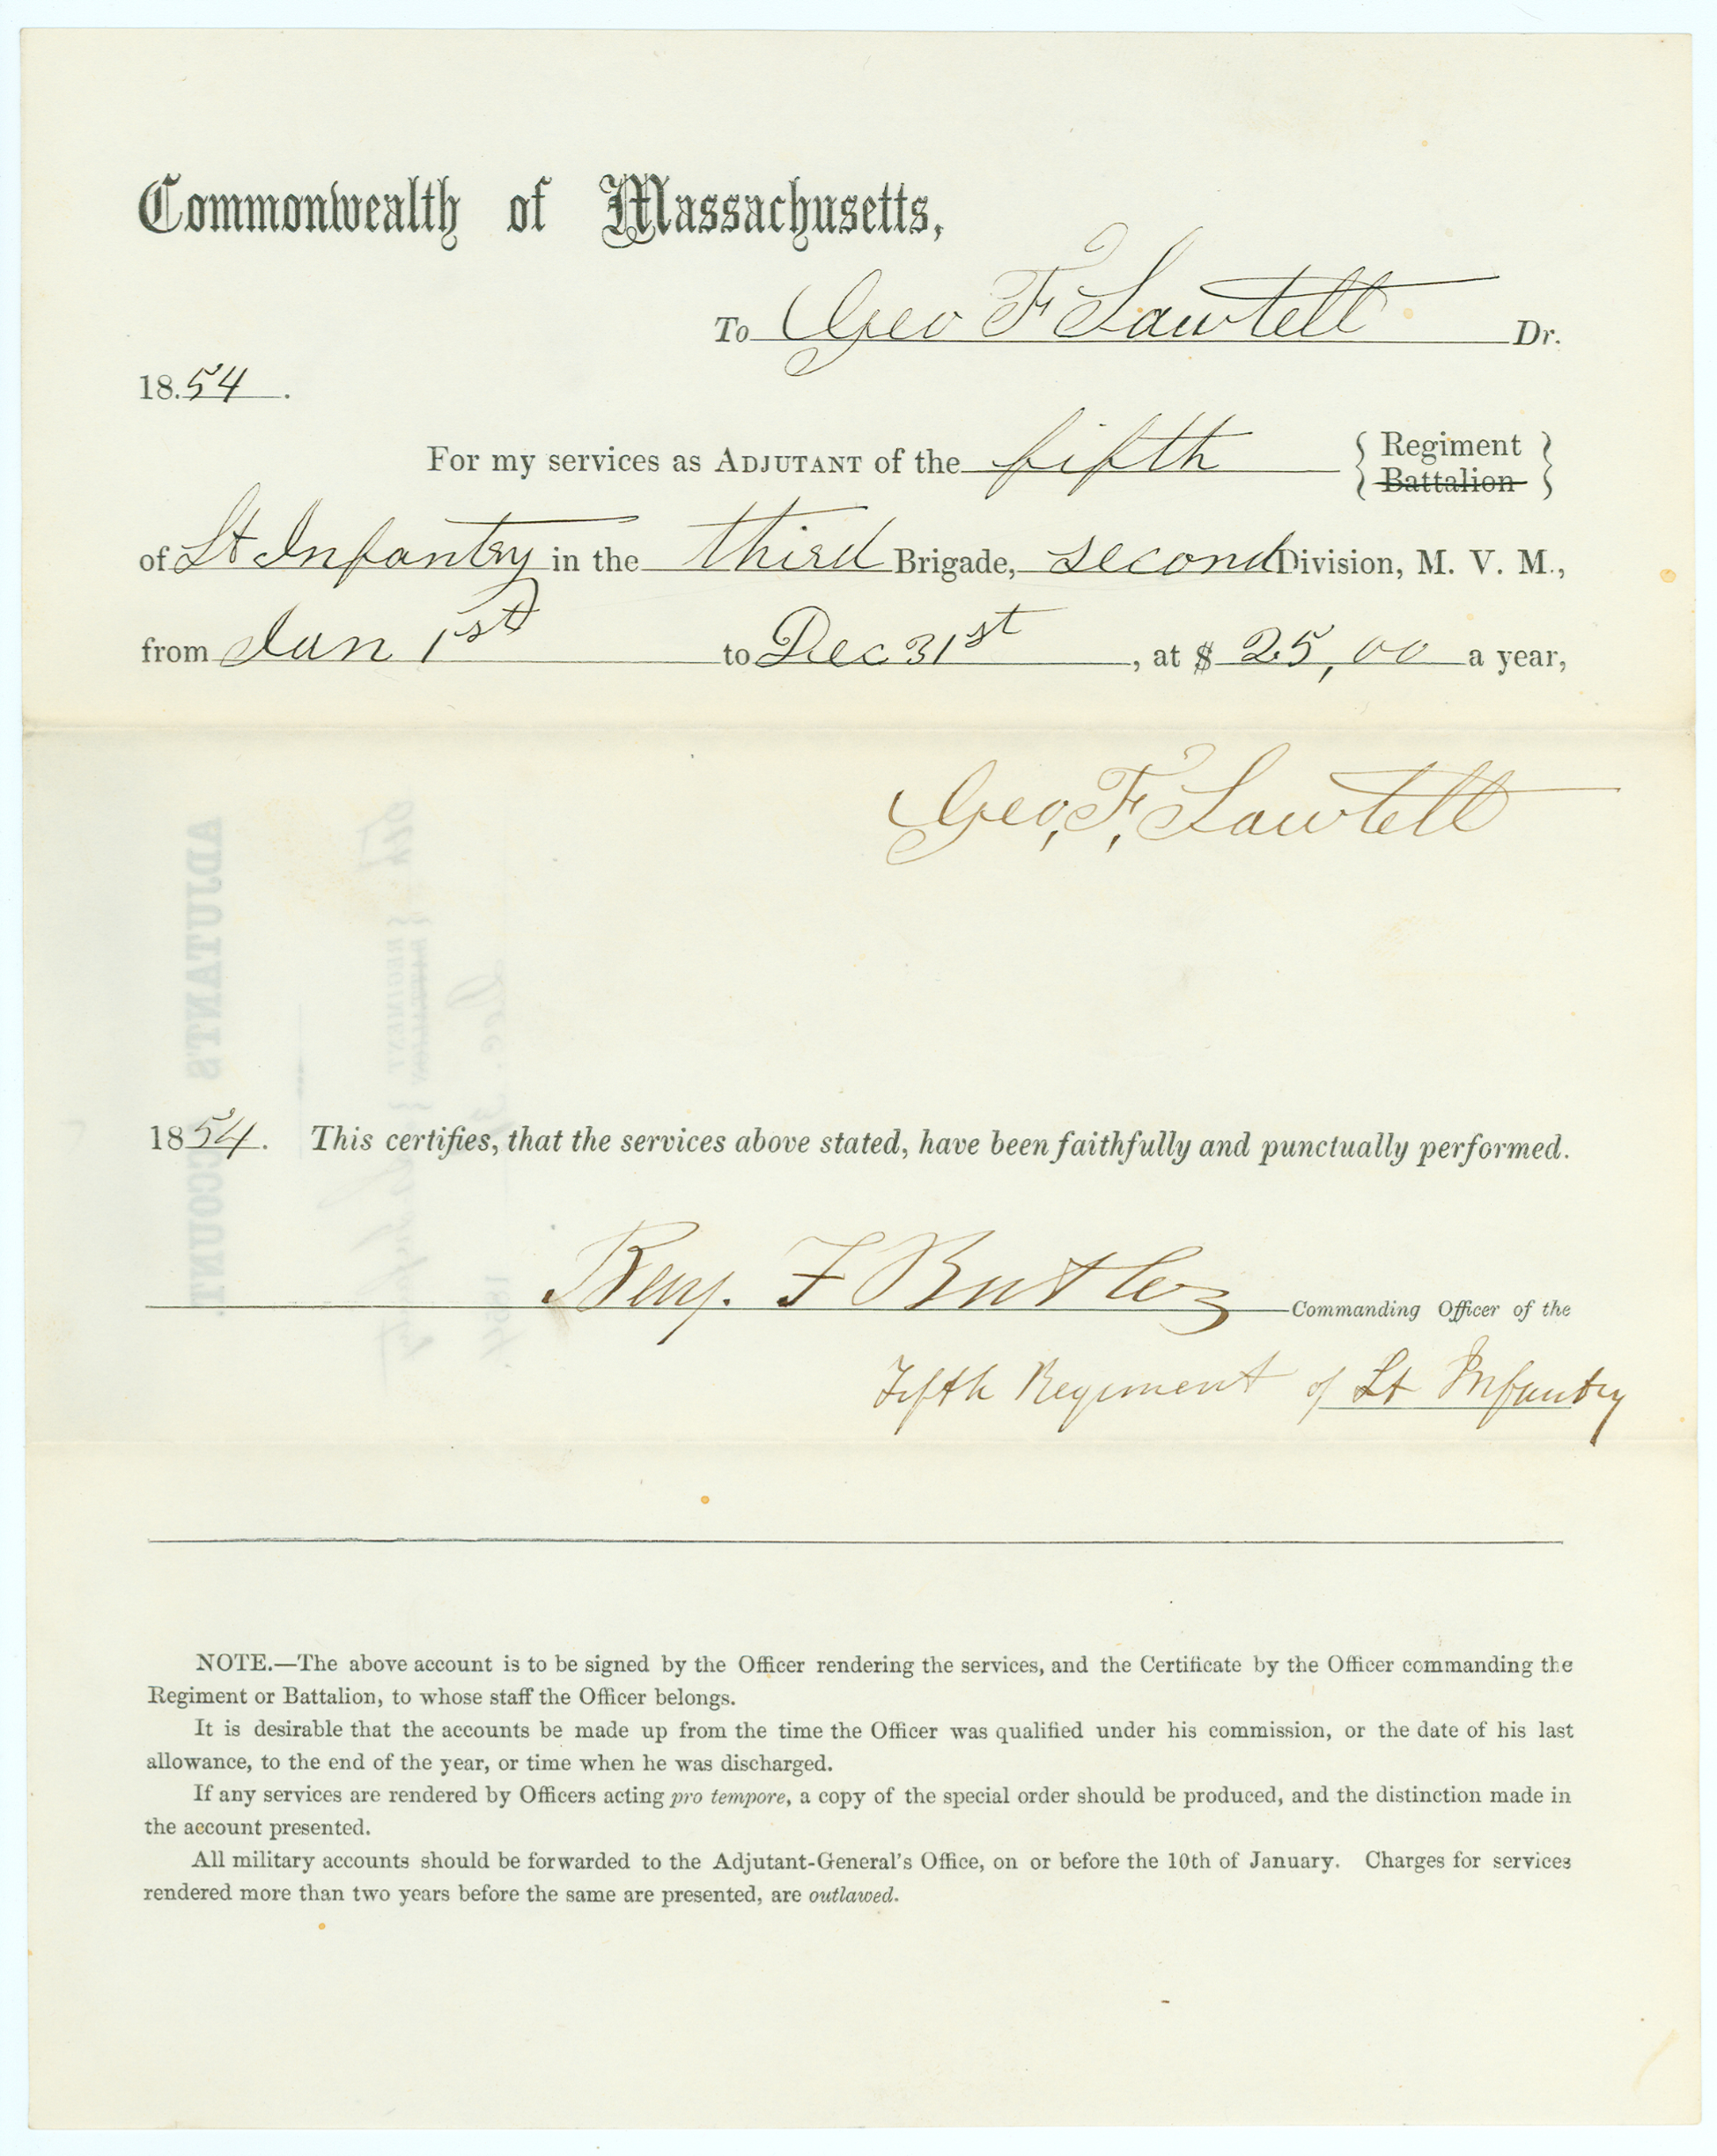 Commonwealth of Massachusetts,
To Geo F Sawtell Dr.
18.54 .
For my services as ADJUTANT of the fifth { Regiment }
{ Battalion }
of Lt Infantry in the third Brigade, second Division, M. V. M.,
from Jan 1st to Dec 31st , at $ 25,00 a year,
Geo, F, Sawtell
1854. This certifies, that the services above stated, have been faithfully and punctually performed.
Benj. F Butler Commanding Officer of the
Fifth Regiment of Lt Infantry
NOTE.—The above account is to be signed by the Officer rendering the services, and the Certificate by the Officer commanding the
Regiment or Battalion, to whose staff the Officer belongs.
It is desirable that the accounts be made up from the time the Officer was qualified under his commission, or the date of his last
allowance, to the end of the year, or time when he was discharged.
If any services are rendered by Officers acting pro tempore, a copy of the special order should be produced, and the distinction made in
the account presented.
All military accounts should be forwarded to the Adjutant-General's Office, on or before the 10th of January. Charges for services
rendered more than two years before the same are presented, are outlawed.
ADJUTANT'S ACCOUNT.
5th
{ REGIMENT }
{ BATTALION }
1854.